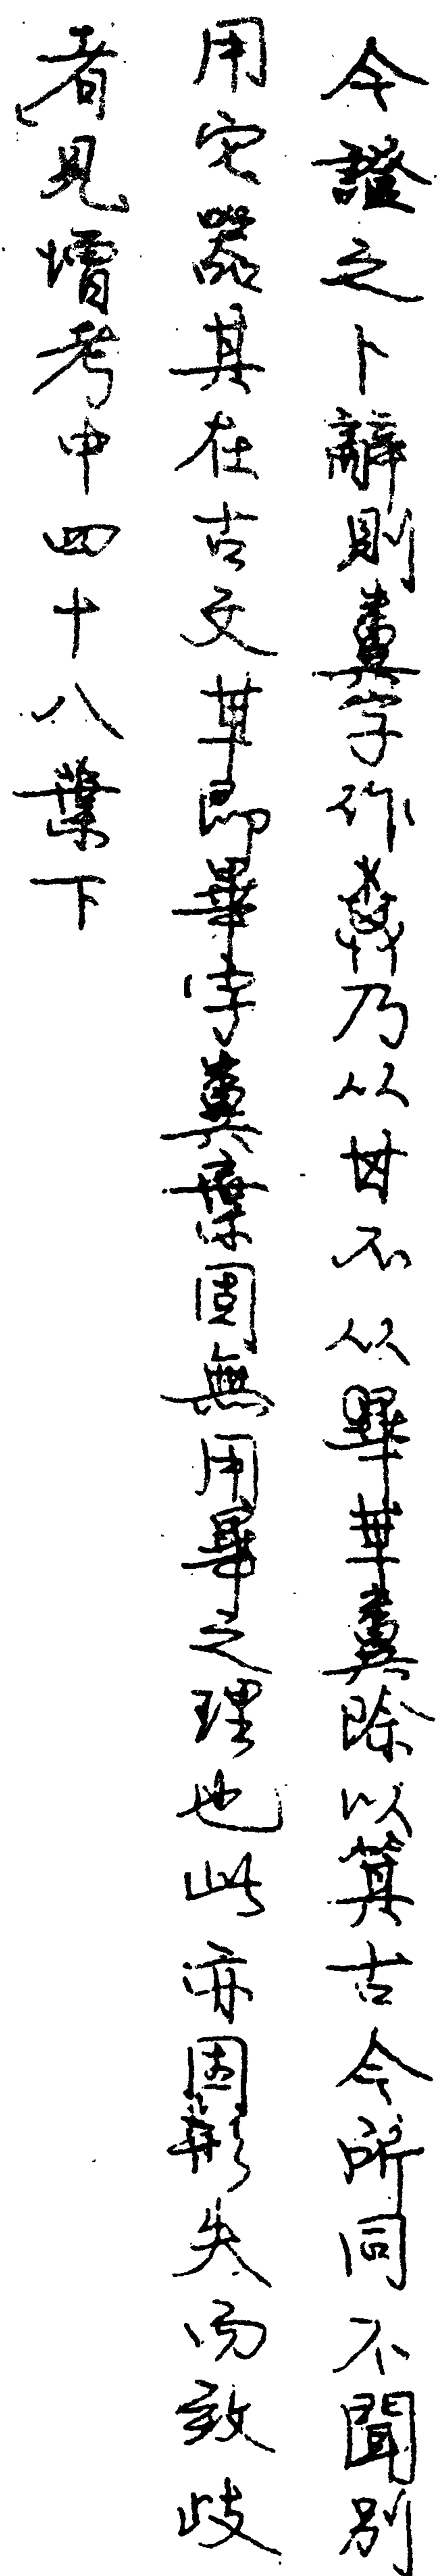 今證之卜辭則糞字作乃从甘不从畢𠦒糞除以箕古今所同不聞別
用它器其在古文𠦒即畢字糞棄固無用畢之理也此亦因形失而致歧
者見增考中四十八葉下